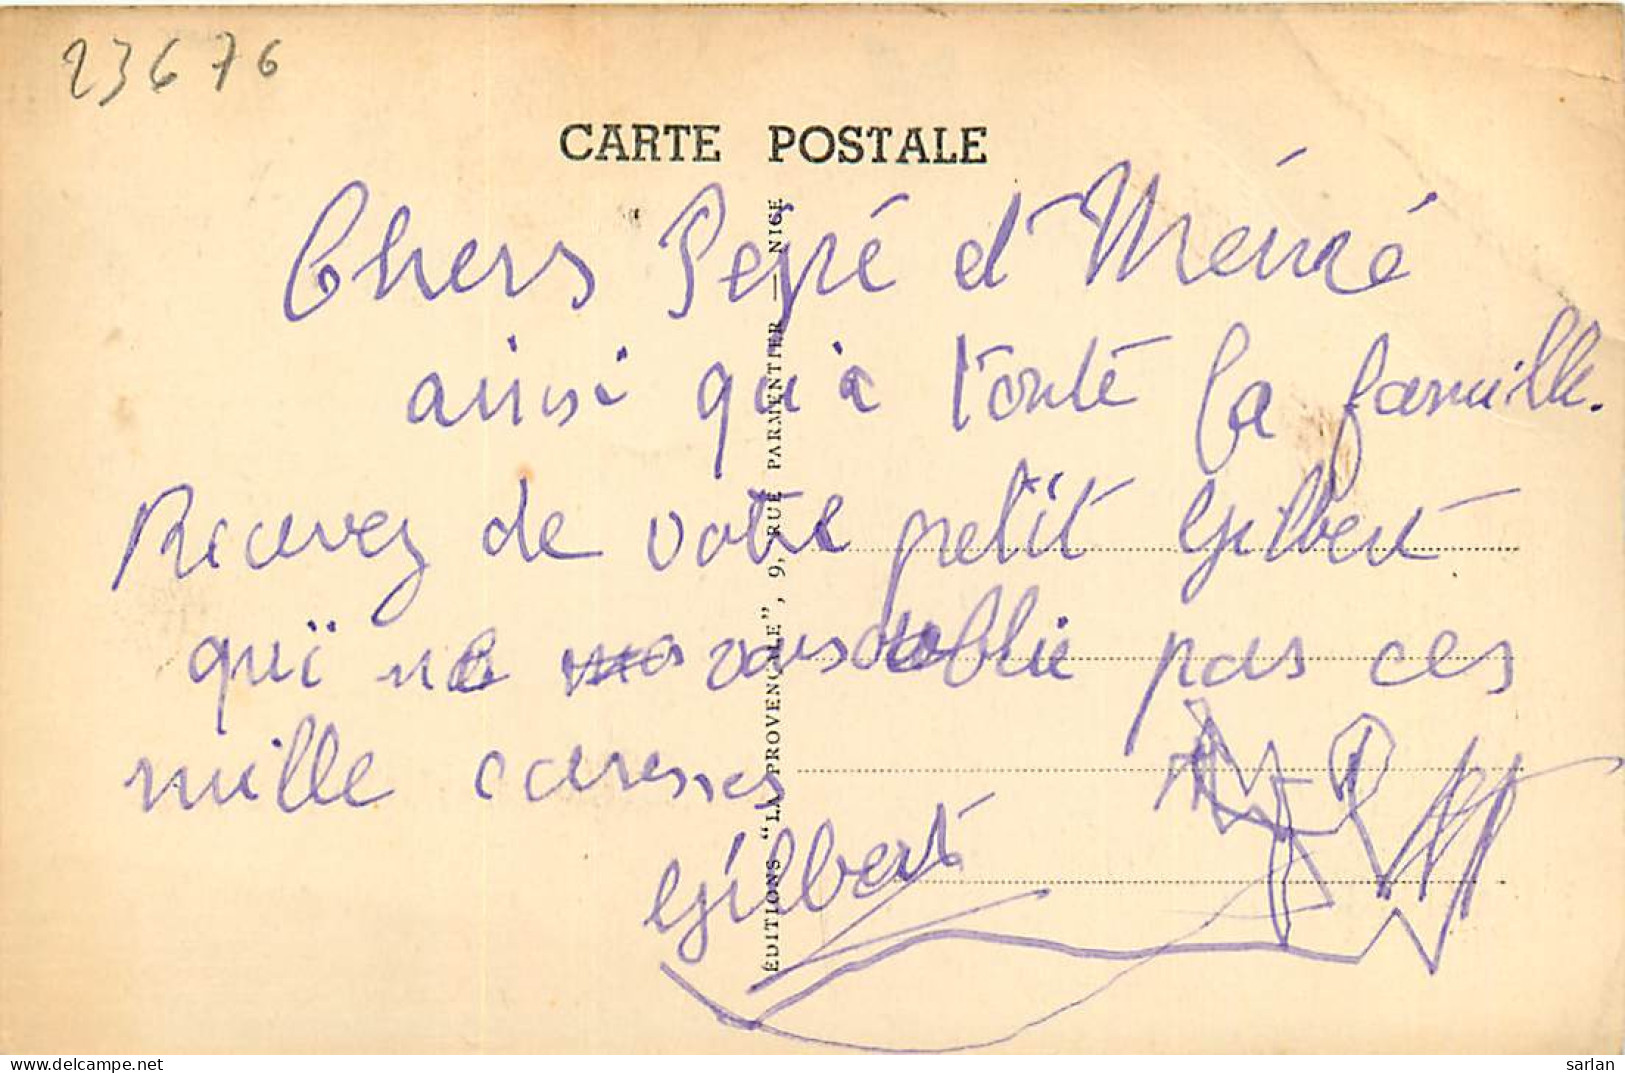 23676
CARTE POSTALE
Chers Pepé et Mémé
ainsi qu'a toute la famille.
Recevez de votre petit Gilbert
qui ne vous oublie pas ces
mille caresses
Gilbert
ÉDITIONS "LA PROVENÇALE", 9, RUE PARMENTIER — NICE
sarlan